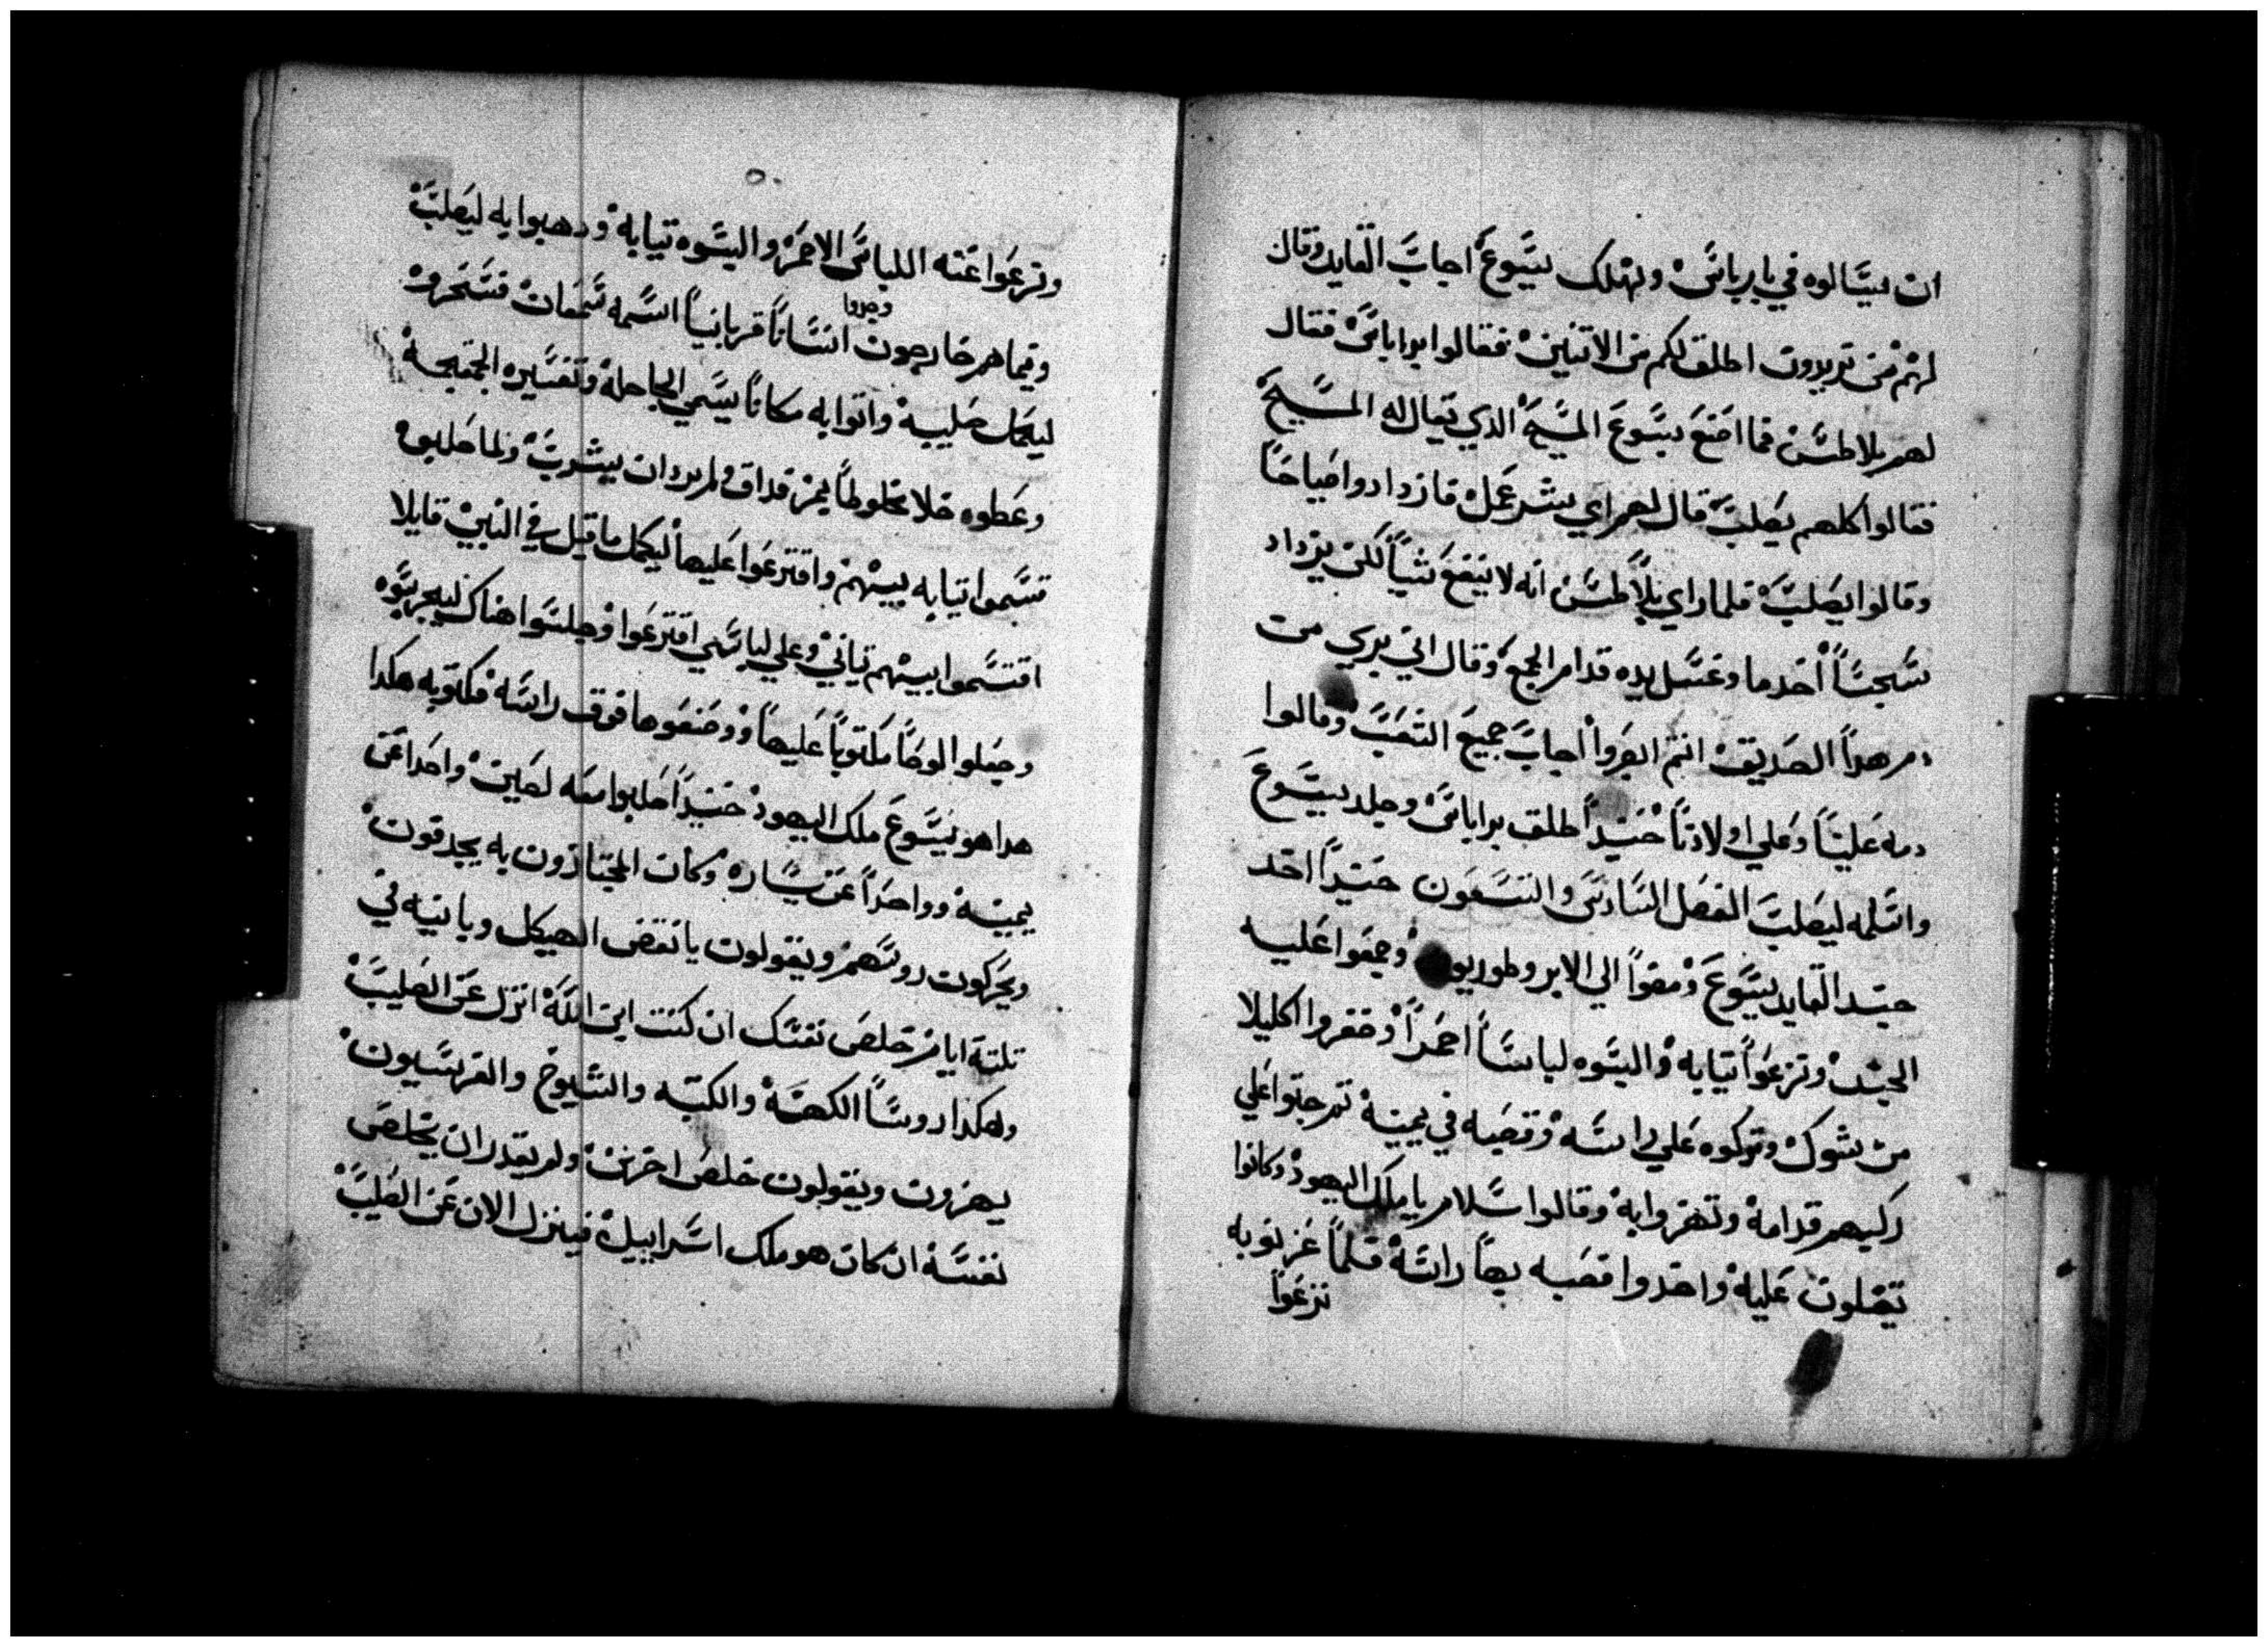 ان يسالوه في باربانس ويهلك يسوع اجاب القايد وقال
لهم من تريدون اطلق لكم من الاتنين فقالوا براباس فقال
لهم بلاطس فما اصنع بيسوع المسيح الدي يقال له المسيح
فقالوا كلهم يصلب قال لهم اي شر عمل فازدادوا صياحا
وقالوا يصلب فلما راي بلاطس انه لا ينفع شيا لكن يزداد
سجسا اخد ما وغسل يده قدام الجمع وقال اني بري من
دم هدا الصديق انتم ابصروا اجاب جميع الشعب وقالوا
دمه علينا وعلي اولادنا حنيدا اطلق براباس وجلد يسوع
واسلمه ليصلب الفصل السادس والتسعون حنيدا اخد
جند القايد يسوع ومضوا الي الابروطوريون وجمعوا عليه
الجند ونزعوا تيابه والبسوه لباسا احمرا وضفروا اكليلا
من شوك وتركوه علي راسه وقصبه في يمينه تم جتوا علي
ركبهم قدامه وتهزوا به وقالوا سلام يا ملك اليهود وكانوا
تفلون عليه واخدوا قصبه بها راسه فلما عزيو به
نزعوا
ونزعوا عنه اللباس الاحمر والبسوه تيابه ودهبوا به ليصلب
وفيما هم خارجون وجدوا انسانا قربانيا اسمه سمعان فسخروه
ليحمل صليبه واتوا به مكانا يسمي الجاجله وتفسيره الجمجمه
وعطوه خلا مخلوطا بمر فداق ولم يرد ان يشرب ولما صلبوه
قسموا تيابه بينهم واقترعوا عليها ليكمل ما قيل في النبي قايلا
اقتسموا بينهم تيابي وعلي لباسي اقترعوا وجلسوا هناك ليحرسوه
وجعلوا لوحا مكتوبا عليها ووضعوها فوق راسه مكتوبه هكدا
هدا هو يسوع ملك اليهود حنيدا صلبوا معه لصين واحدا عن
يمينه وواحدا عن يساره وكان المجتازون به يجدقون
ويحركون روسهم ويقولون يا نقض الهيكل وبانيه في
تلتة ايام خلص نفسك ان كنت ابن الله انزل عن الصليب
وهكدا روسا الكهنه والكتبه والشيوخ والفريسيون
يهزون ويقولون خلص اخرين ولم يقدر ان يخلص
نفسه ان كان هو ملك اسراييل فينزل الان عن الصليب